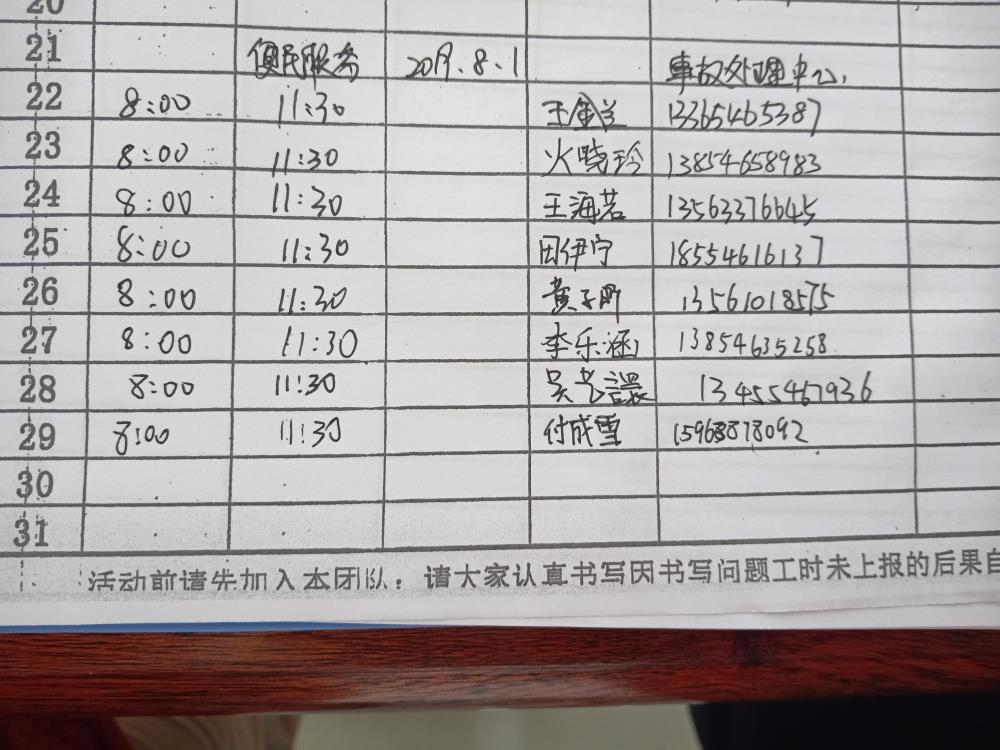 20
21 便民服务 2019.8.1 事故处理中心.
22 8:00 11:30 王金兰 13365465387
23 8:00 11:30 火晓玲 13854658983
24 8:00 11:30 王海若 13563376645
25 8:00 11:30 田伊宁 18554616137
26 8:00 11:30 黄子昕 13561018575
27 8:00 11:30 李乐涵 13854635258
28 8:00 11:30 13455467936
29 8:00 11:30 付成雪 15968878092
30
31
活动前请先加入本团队,请大家认真书写因书写问题工时未上报的后果自